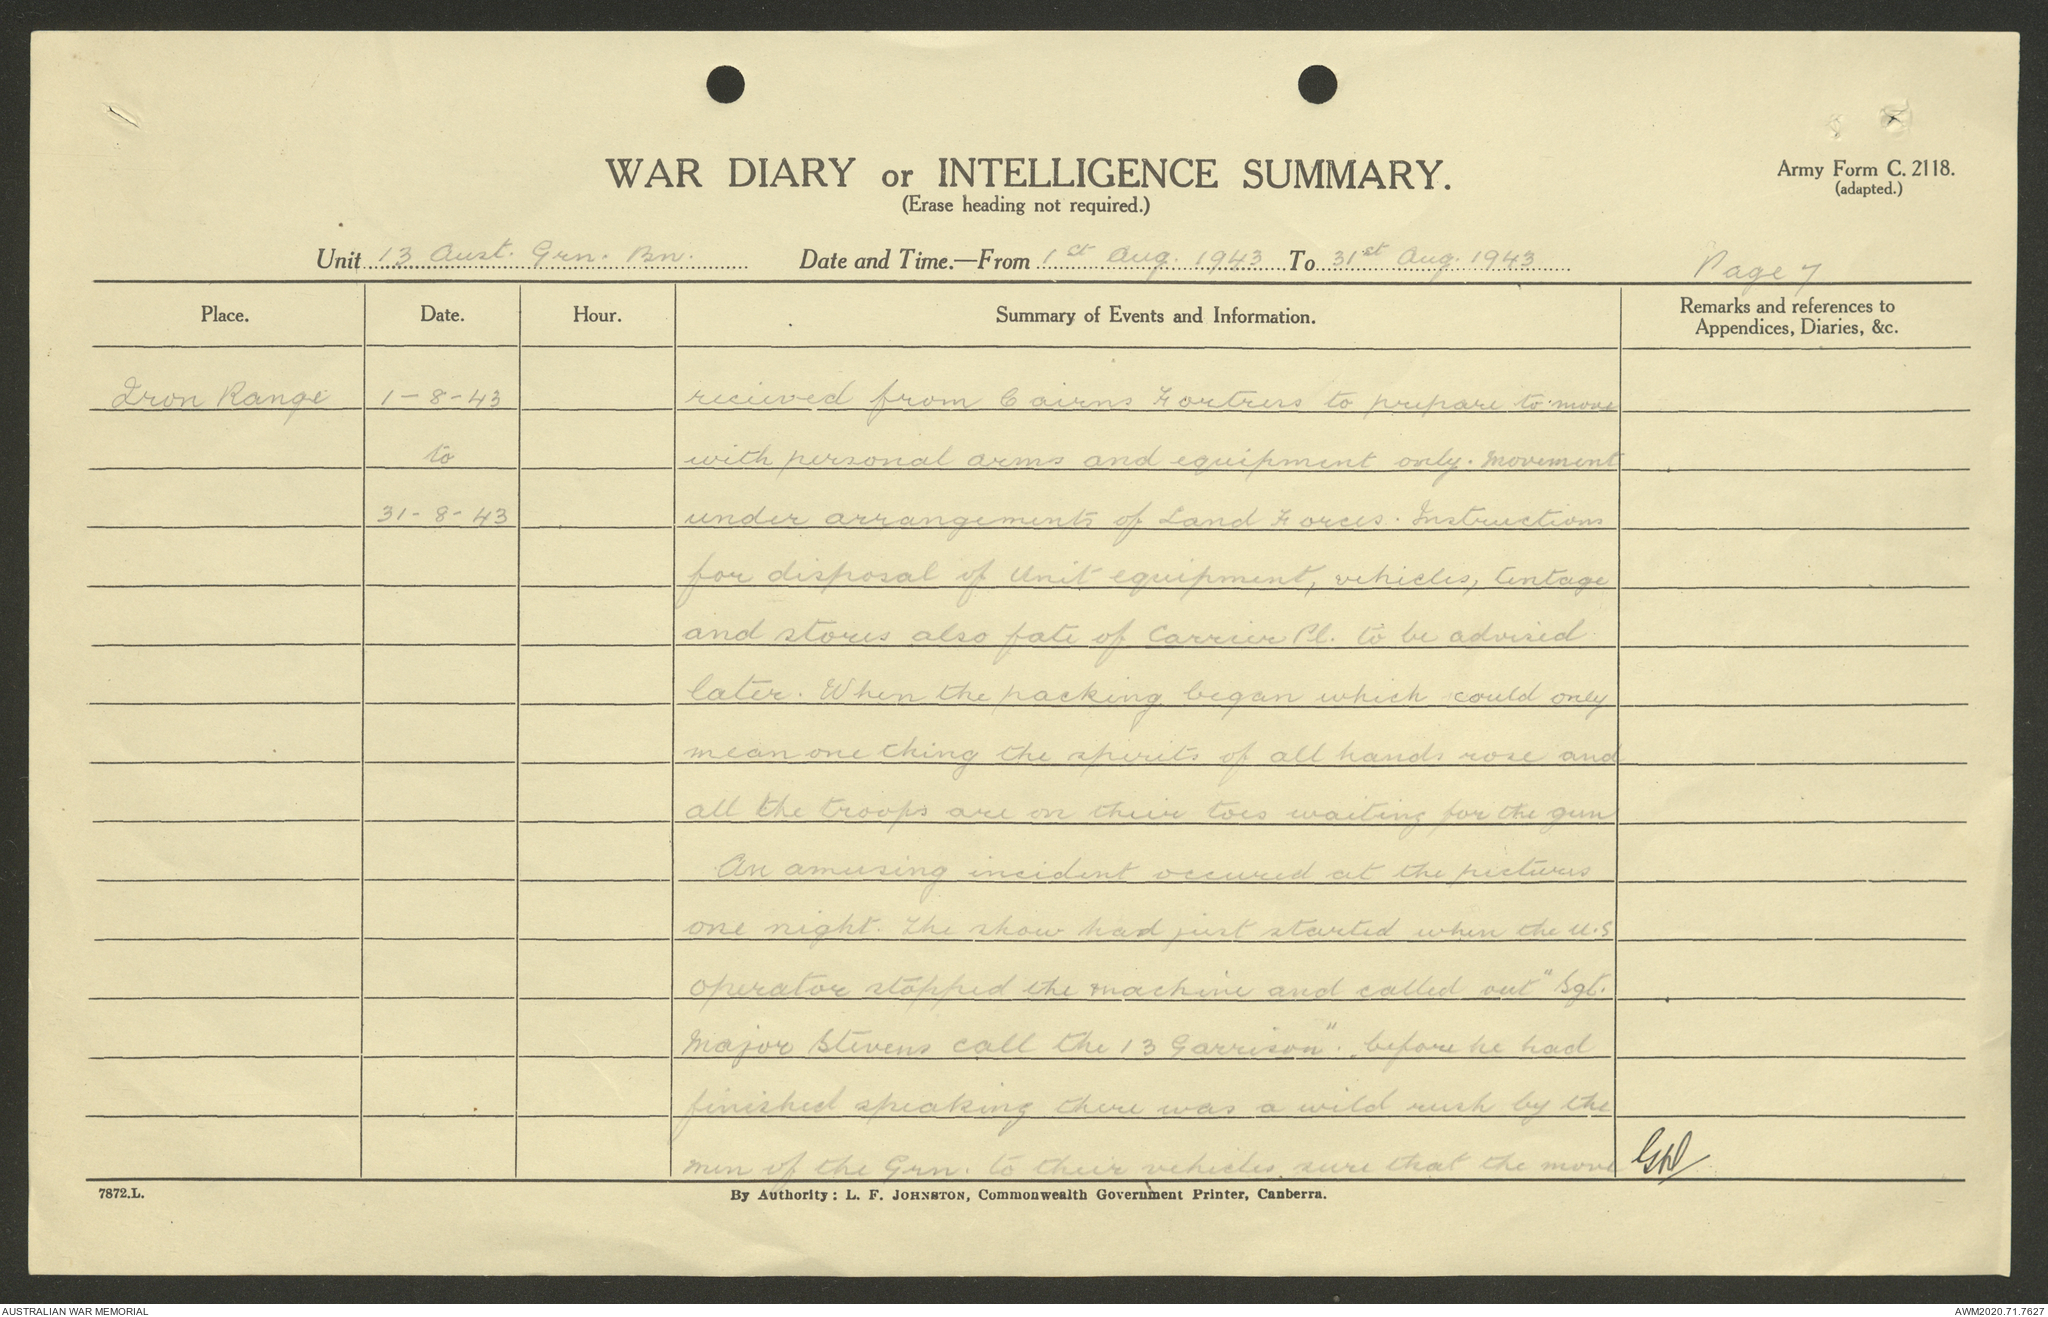 WAR DIARY or INTELLIGENCE SUMMARY.
(Erase heading not required.)
Army Form C. 2118.
(adapted.)
Unit 13 Aust. Grn. Bn. Date and Time.—From 1st Aug. 1943 To 31st Aug. 1943
Page 7
Place. Date. Hour. Summary of Events and Information. Remarks and references to
Appendices, Diaries, &c.
Iron Range 1-8-43 recieved from Cairns Fortress to prepare to move
to with personal arms and equipment only. Movement
31-8-43 under arrangements of Land Forces. Instructions
for disposal of Unit equipment, vehicles, tentage
and stores also fate of Carrier Pl. to be advised
later. When the packing began which could only
mean one thing the spirits of all hands rose and
all the troops are on their toes waiting for the gun
An amusing incident occured at the pictures
one night. The show had just started when the U.S
operator stopped the machine and called out "Sgt.
Major Stevens call the 13 Garrison". before he had
finished speaking there was a wild rush by the
men of the Grn. to their vehicles sure that the move
7872.L. By Authority: L. F. JOHNSTON, Commonwealth Government Printer, Canberra.
AUSTRALIAN WAR MEMORIAL AWM2020.71.7627